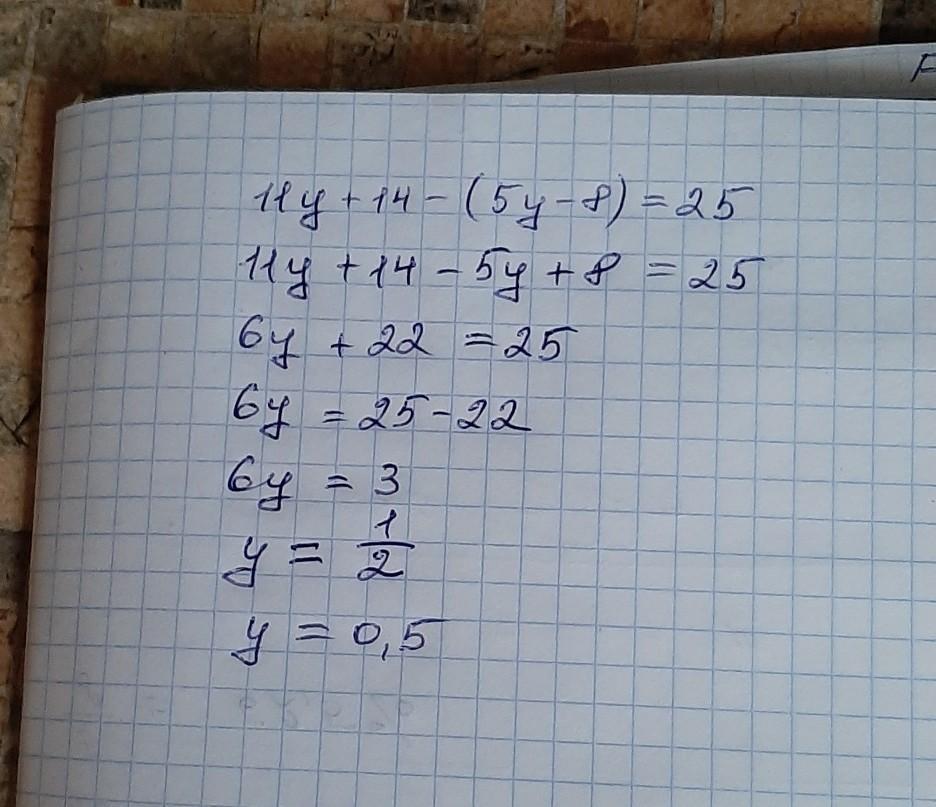 11y + 14 - (5y - 8) = 25
11y + 14 - 5y + 8 = 25
6y + 22 = 25
6y = 25 - 22
6y = 3
y = 1/2
y = 0,5